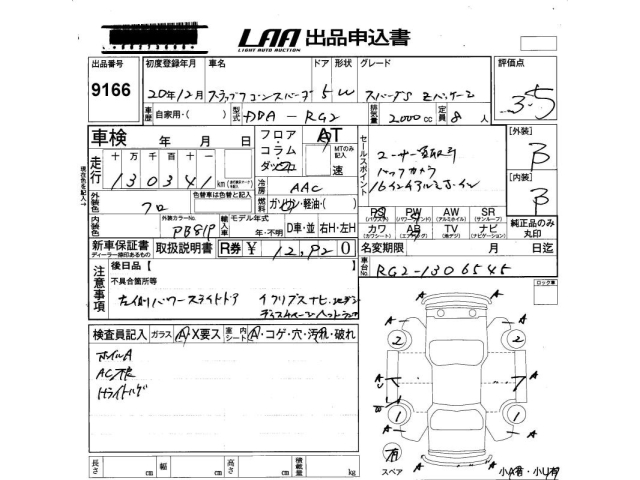 LAA 出品申込書
LIGHT AUTO AUCTION
出品番号 初度登録年月 車名 ドア 形状 グレード 評価点
9166 20年12月 ステップワゴンスパーダ 5 W スパーダS Zパッケージ 3.5
車歴 自家用・( ) 型式 DBA - RG2 排気量 2000 cc 定員 8 人
車検 年 月 日
フロア・コラム・ダッシュ AT MTのみ記入 速
セールスポイント
ユーザー買取引
バックカメラ
16インチアルミホイール
[外装] B
[内装] B
走行 十万 万 千 百 十 一
130341 km
冷房 AAC
外装色 クロ 色替車は色替と記入
燃料 ガソリン・軽油・( )
内装色 外装カラーNo. PB81P
輸入車 モデル年式 年・不明 D車・並 右H・左H
PS PW AW SR
(パワステ) (パワーウィンド) (アルミホイル) (サンルーフ)
カワ AB TV ナビ
(本革シート) (エアバッグ) (地デジ) (ナビゲーション)
純正品のみ丸印
新車保証書 取扱説明書 R券 ¥ 12,920
ディーラー捺印あるもの
名変期限 月 日迄
車台No. RG2-1306545
注意事項 後日品【 】
不具合箇所等
左側パワースライドドア
ロック車
検査員記入 ガラス A・X要ス 室内シート A・コゲ・穴・汚れ・破れ
ホイルA
AC不良
Hライトハゲ
A
2 2
A
1 1
有
スペア
小A有・小U有
長さ cm 幅 cm 高さ cm 積載量 kg